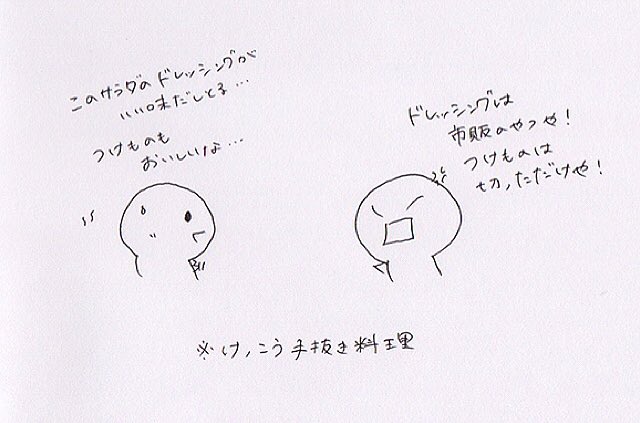 このサラダのドレッシングが
いい味だしとる…
つけものも
おいしいな…
ドレッシングは
市販のやつや！
つけものは
切っただけや！
※けっこう手抜き料理